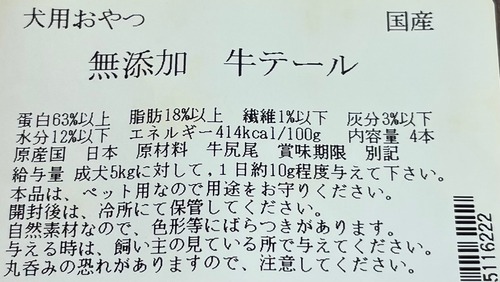 犬用おやつ 国産
無添加 牛テール
蛋白63%以上 脂肪18%以上 繊維1%以下 灰分3%以下
水分12%以下 エネルギー414kcal/100g 内容量 4本
原産国 日本 原材料 牛尻尾 賞味期限 別記
給与量 成犬5kgに対して，1日約10g程度与えて下さい。
本品は、ペット用なので用途をお守りください。
開封後は、冷所にて保管してください。
自然素材なので、色形等にばらつきがあります。
与える時は、飼い主の見ている所で与えてください。
丸呑みの恐れがありますので、注意してください。
5116222